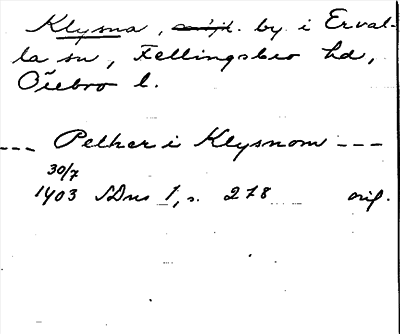 Klysna, by i Erval-
la sn, Fellingsbro hd,
Örebro l.
--- Pelher i Klysnom ---
30/7
1403 SDns 1, s. 278 orig.